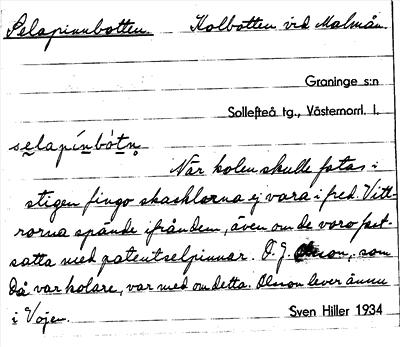 Selapinnbotten. Kolbotten vid Malmån.
Graninge s:n
Sollefteå tg., Västernorrl. l.
selapínbótn̥
När kolen skulle fatas i
stigen fingo skacklorna ej vara i fred. Vitt-
rorna spände ifrån dem, även om de voro fast-
satta med patentselpinnar. O. J. Olsson, som
då var kolare, var med om detta. Olsson lever ännu
i Vojen. Sven Hiller 1934